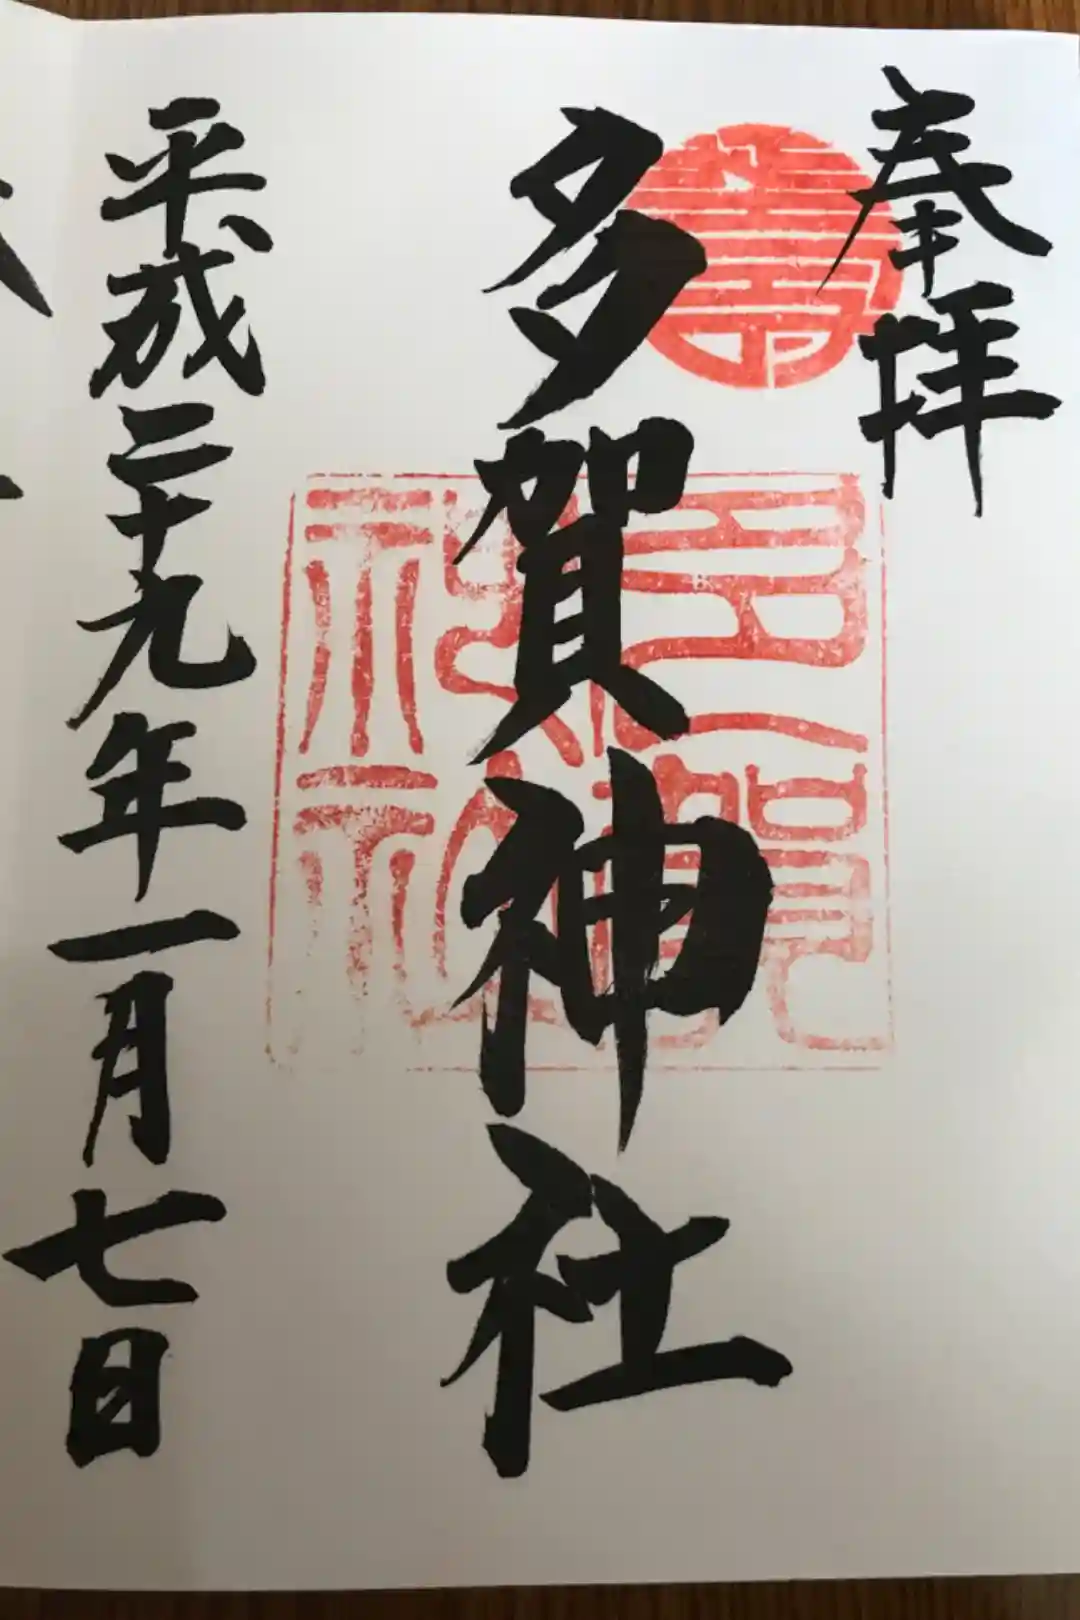 奉拝
多賀神社
平成二十九年一月七日
寿
多賀神社